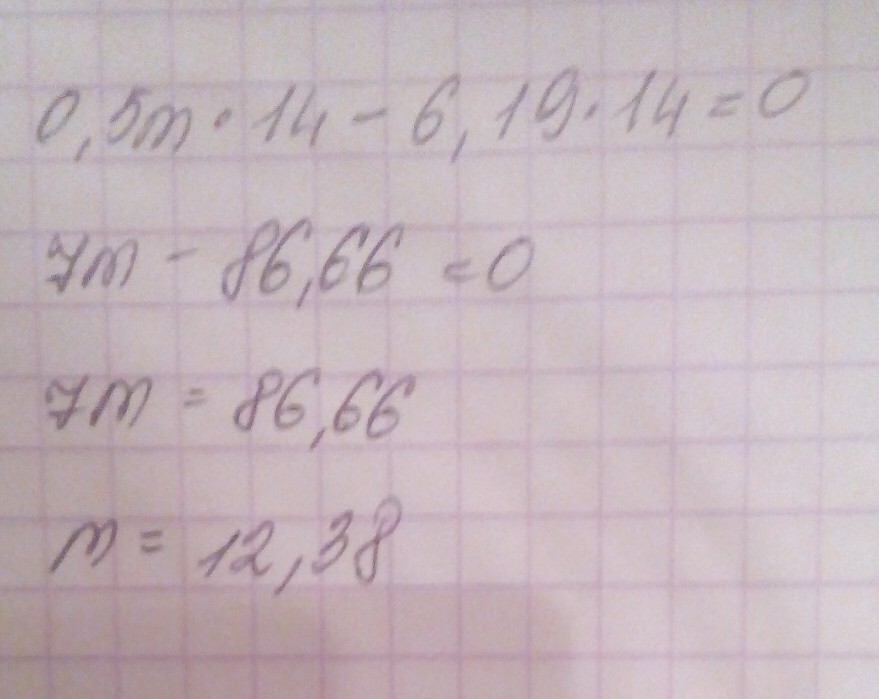 0,5m · 14 - 6,19 · 14 = 0
7m - 86,66 = 0
7m = 86,66
m = 12,38